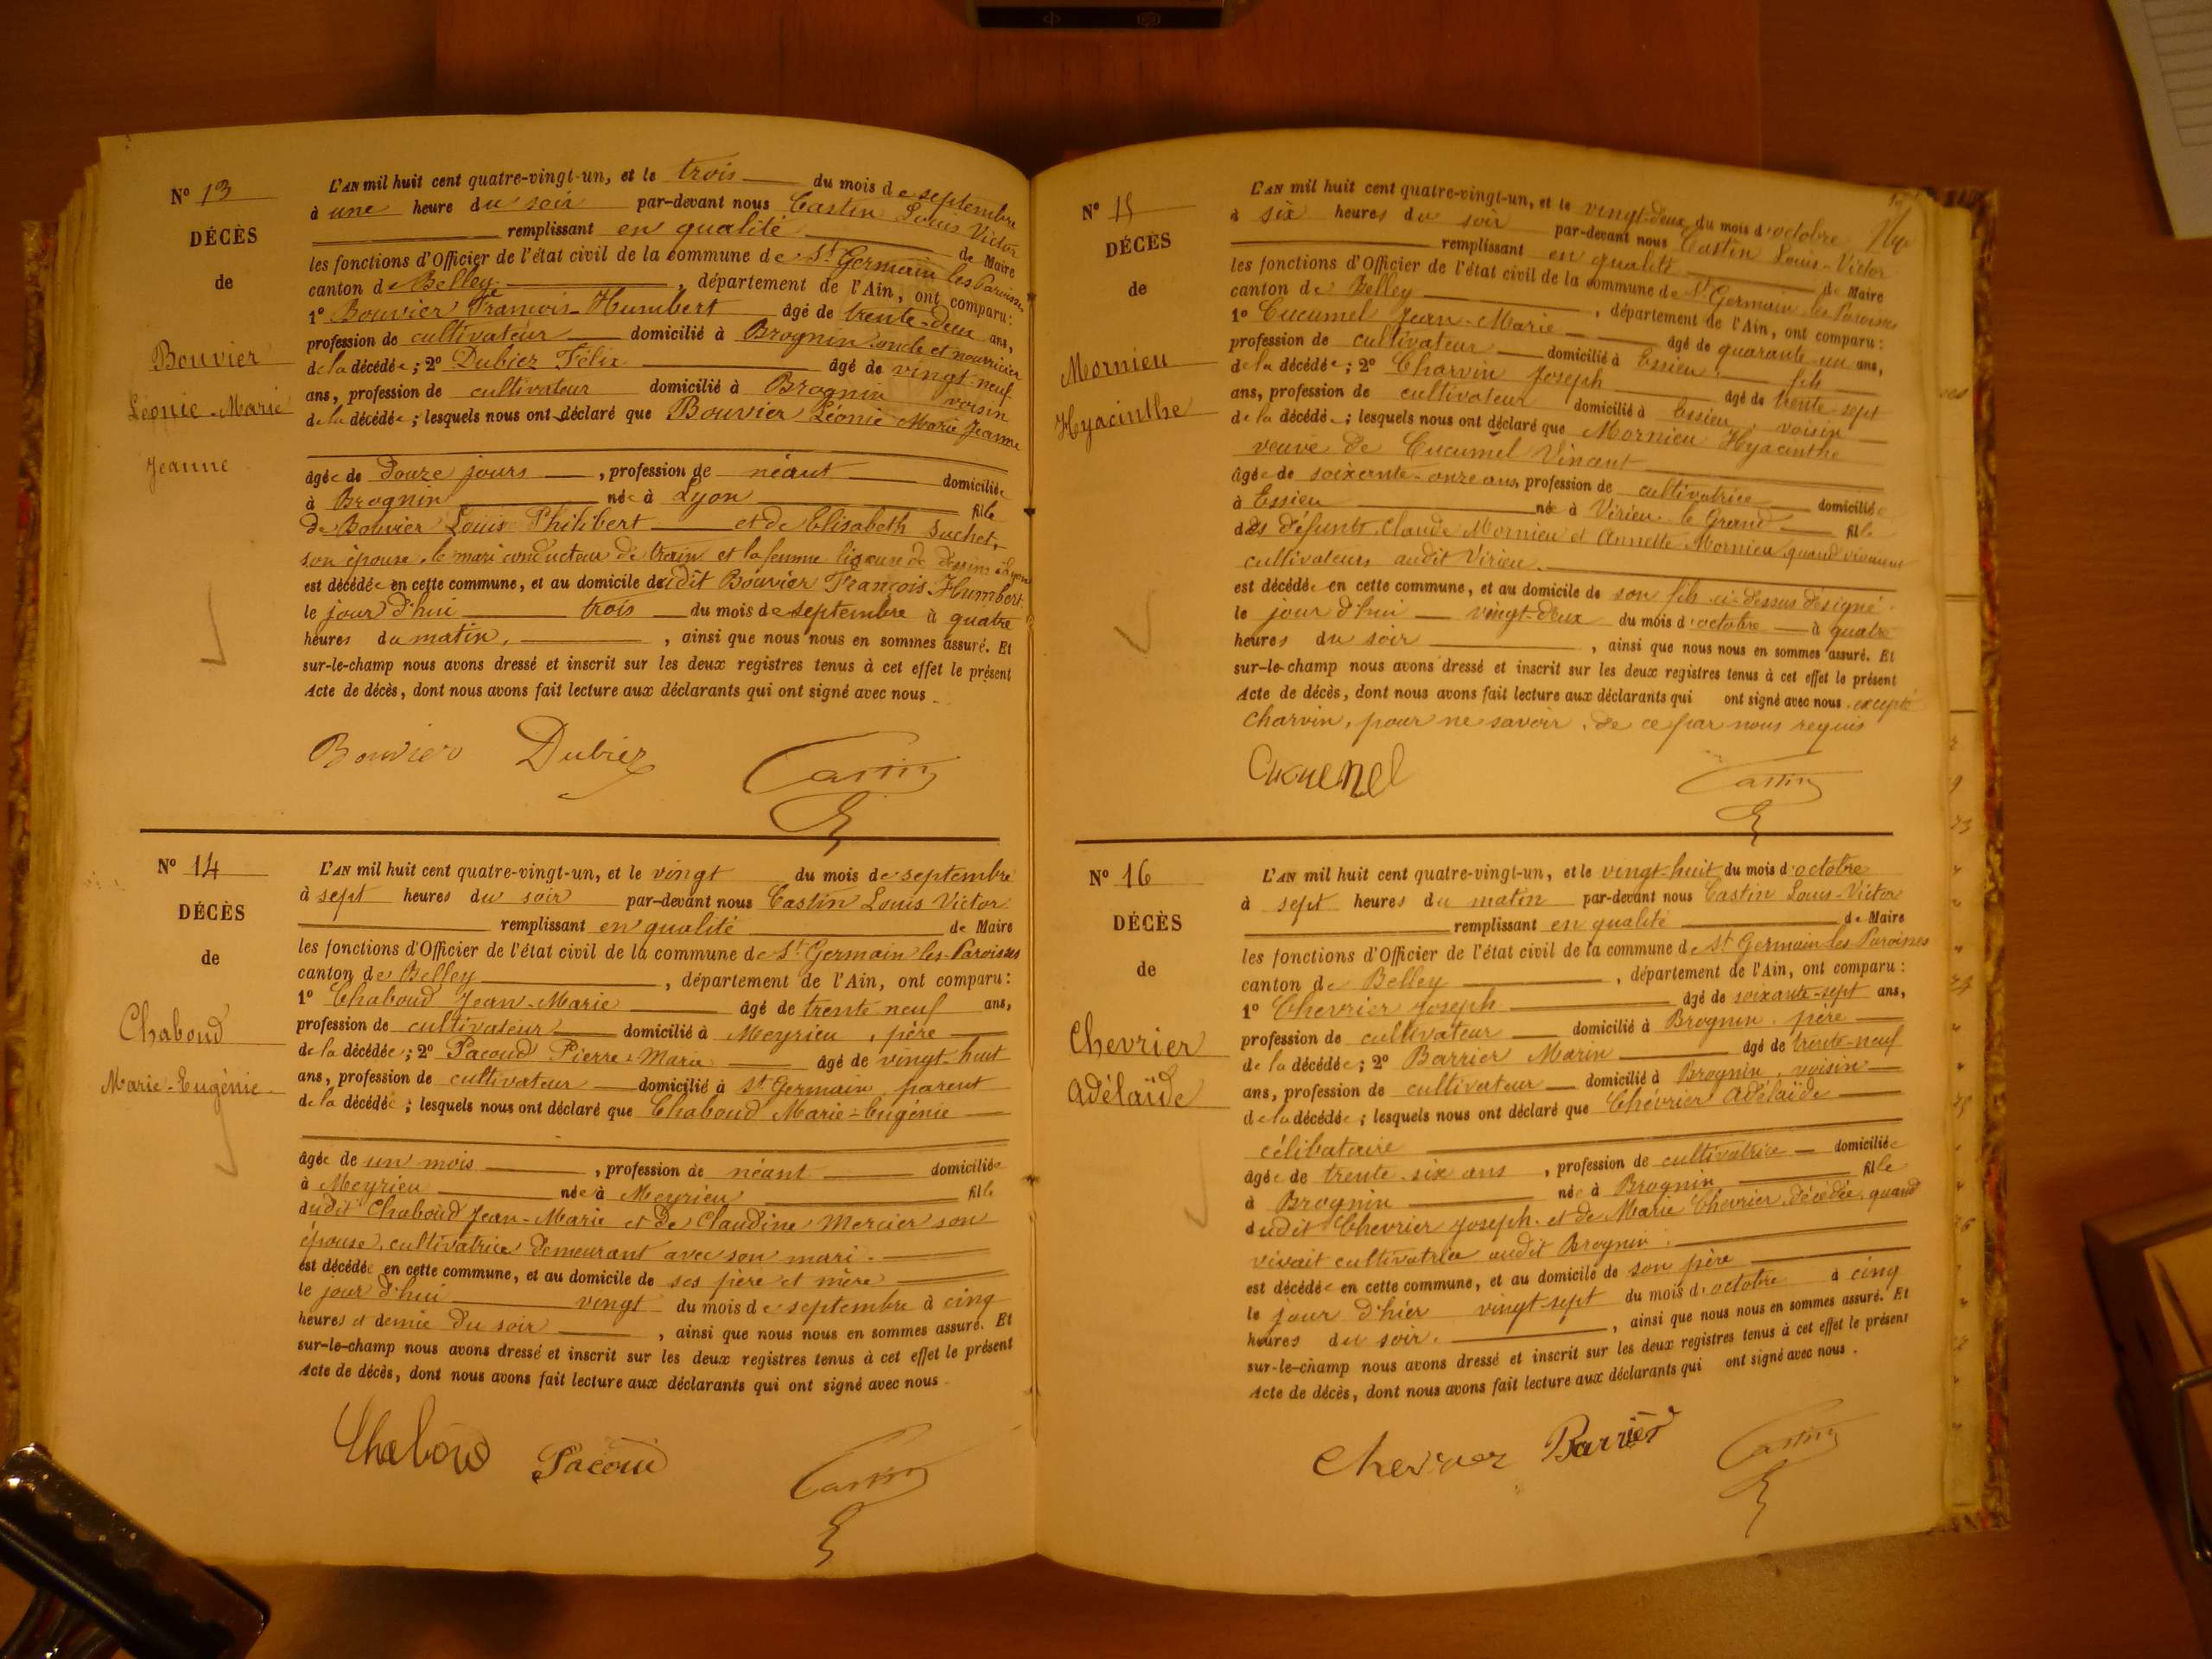 N° 13
DÉCÈS
de
Bouvier
Léonie-Marie
Jeanne
L'AN mil huit cent quatre-vingt-un, et le trois du mois de septembre
à une heure du soir par-devant nous Castin Louis Victor
remplissant en qualité de Maire
les fonctions d'Officier de l'état civil de la commune de St Germain les Paroisses
canton de Belley, département de l'Ain, ont comparu:
1° Bouvier François-Humbert âgé de trente-deux ans,
profession de cultivateur domicilié à Brognin oncle et nourricier
de la décédée; 2° Dubiez Félix âgé de vingt-neuf
ans, profession de cultivateur domicilié à Brognin voisin
de la décédée; lesquels nous ont déclaré que Bouvier Léonie Marie Jeanne
âgée de douze jours, profession de néant domiciliée
à Brognin née à Lyon fille
de Bouvier Louis Philibert et de Elisabeth Suchet,
son épouse, le mari conducteur de train et la femme liseuse de dessins à Lyon
est décédée en cette commune, et au domicile dudit Bouvier François-Humbert
le jour d'hui trois du mois de septembre à quatre
heures du matin, ainsi que nous nous en sommes assuré. Et
sur-le-champ nous avons dressé et inscrit sur les deux registres tenus à cet effet le présent
Acte de décès, dont nous avons fait lecture aux déclarants qui ont signé avec nous
Bouvier Dubiez Castin
N° 14
DÉCÈS
de
Chaboud
Marie-Eugénie
L'AN mil huit cent quatre-vingt-un, et le vingt du mois de septembre
à sept heures du soir par-devant nous Castin Louis Victor
remplissant en qualité de Maire
les fonctions d'Officier de l'état civil de la commune de St Germain les-Paroisses
canton de Belley, département de l'Ain, ont comparu:
1° Chaboud Jean-Marie âgé de trente neuf ans,
profession de cultivateur domicilié à Meyrieu, père
de la décédée; 2° Pacoud Pierre-Marie âgé de vingt-huit
ans, profession de cultivateur domicilié à St Germain, parent
de la décédée; lesquels nous ont déclaré que Chaboud Marie-Eugénie
âgée de un mois, profession de néant domiciliée
à Meyrieu née à Meyrieu fille
dudit Chaboud Jean-Marie et de Claudine Mercier son
épouse, cultivatrice demeurant avec son mari.
est décédée en cette commune, et au domicile de ses père et mère
le jour d'hui vingt du mois de septembre à cinq
heures et demie du soir, ainsi que nous nous en sommes assuré. Et
sur-le-champ nous avons dressé et inscrit sur les deux registres tenus à cet effet le présent
Acte de décès, dont nous avons fait lecture aux déclarants qui ont signé avec nous
Chaboud Pacoud Castin
N° 15
DÉCÈS
de
Mornieu
Hyacinthe
L'AN mil huit cent quatre-vingt-un, et le vingt-deux du mois d'octobre
à six heures du soir par-devant nous Castin Louis-Victor
remplissant en qualité de Maire
les fonctions d'Officier de l'état civil de la commune de St Germain les Paroisses
canton de Belley, département de l'Ain, ont comparu:
1° Cucumel Jean-Marie âgé de quarante-un ans,
profession de cultivateur domicilié à Essieu, fils
de la décédée; 2° Charvin Joseph âgé de trente-sept
ans, profession de cultivateur domicilié à Essieu, voisin
de la décédée; lesquels nous ont déclaré que Mornieu Hyacinthe
veuve de Cucumel Vincent
âgée de soixante-onze ans, profession de cultivatrice domiciliée
à Essieu née à Virieu-le Grand fille
des défunts Claude Mornieu et Annette Mornieu, quand vivaient
cultivateurs audit Virieu.
est décédée en cette commune, et au domicile de son fils ci-dessus désigné
le jour d'hui vingt-deux du mois d'octobre à quatre
heures du soir, ainsi que nous nous en sommes assuré. Et
sur-le-champ nous avons dressé et inscrit sur les deux registres tenus à cet effet le présent
Acte de décès, dont nous avons fait lecture aux déclarants qui ont signé avec nous. excepté
Charvin, pour ne savoir, de ce par nous requis
Cucumel Castin
N° 16
DÉCÈS
de
Chevrier
Adélaïde
L'AN mil huit cent quatre-vingt-un, et le vingt-huit du mois d'octobre
à sept heures du matin par-devant nous Castin Louis-Victor
remplissant en qualité de Maire
les fonctions d'Officier de l'état civil de la commune de St Germain les Paroisses
canton de Belley, département de l'Ain, ont comparu:
1° Chevrier Joseph âgé de soixante-sept ans,
profession de cultivateur domicilié à Brognin, père
de la décédée; 2° Barrier Marin âgé de trente-neuf
ans, profession de cultivateur domicilié à Brognin, voisin
de la décédée; lesquels nous ont déclaré que Chévrier Adélaïde
célibataire
âgée de trente-six ans, profession de cultivatrice domiciliée
à Brognin née à Brognin fille
dudit Chevrier Joseph, et de Marie Chevrier, décédée, quand
vivait cultivatrice audit Brognin.
est décédée en cette commune, et au domicile de son père
le jour d'hier vingt-sept du mois d'octobre à cinq
heures du soir, ainsi que nous nous en sommes assuré. Et
sur-le-champ nous avons dressé et inscrit sur les deux registres tenus à cet effet le présent
Acte de décès, dont nous avons fait lecture aux déclarants qui ont signé avec nous.
Chevrier Barrier Castin